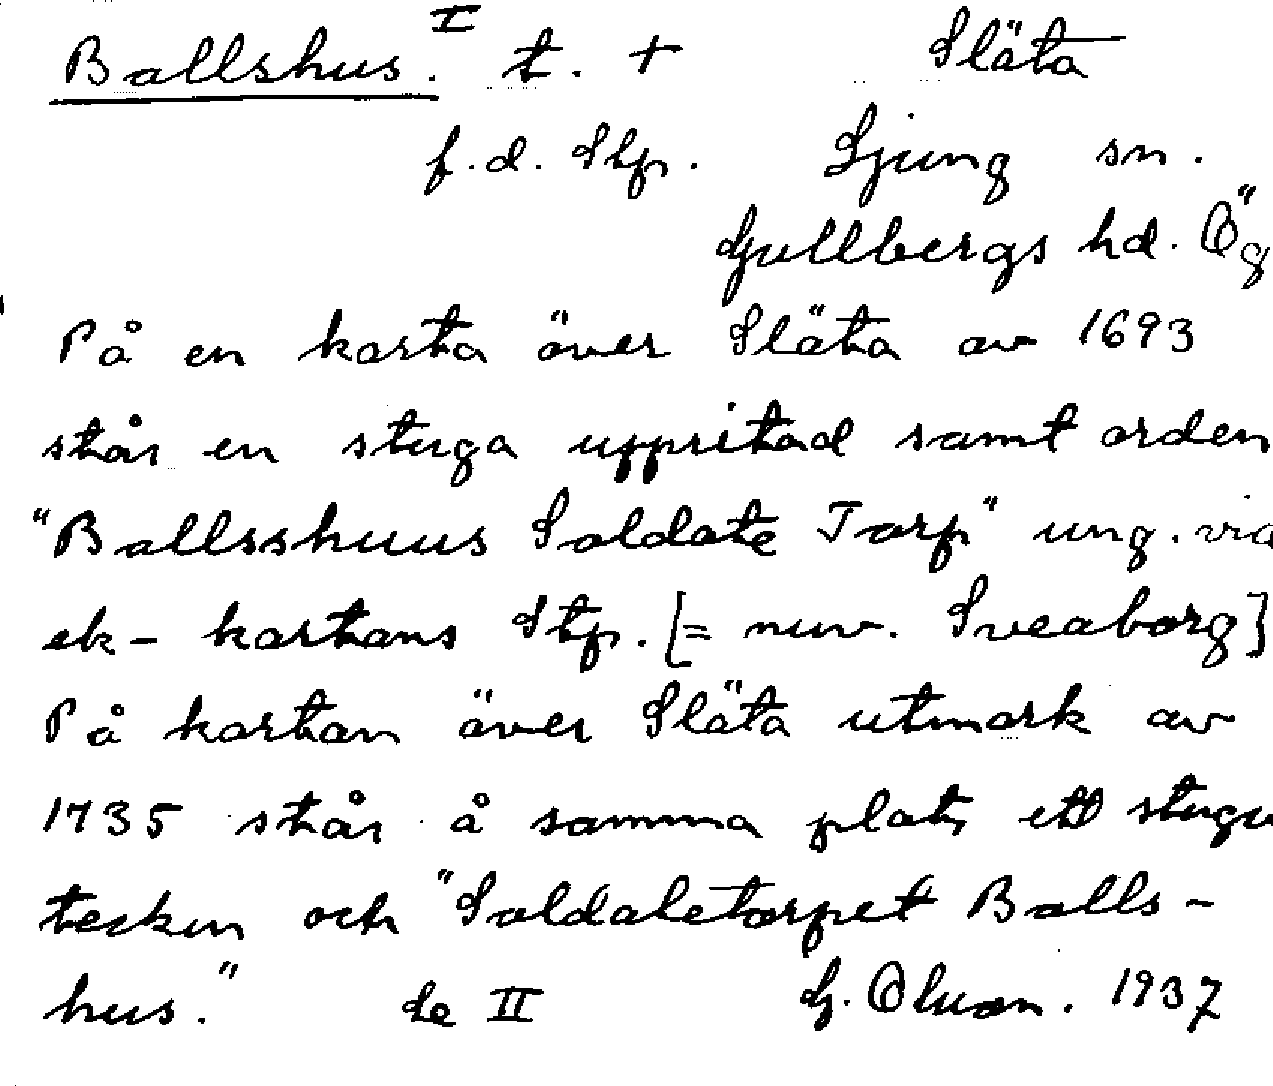 Ballshus. I t. + Släta
f.d. Stp. Ljung sn.
Gullbergs hd. Ög
På en karta över Släta av 1693
står en stuga uppritad samt orden
"Ballsshuus Soldate Torp" ung. vid
ek-kartans Stp. [= nuv. Sveaborg]
På kartan över Släta utmark av
1735 står å samma plats ett stugu
tecken och "Soldatetorpet Balls-
hus." se II G. 1937